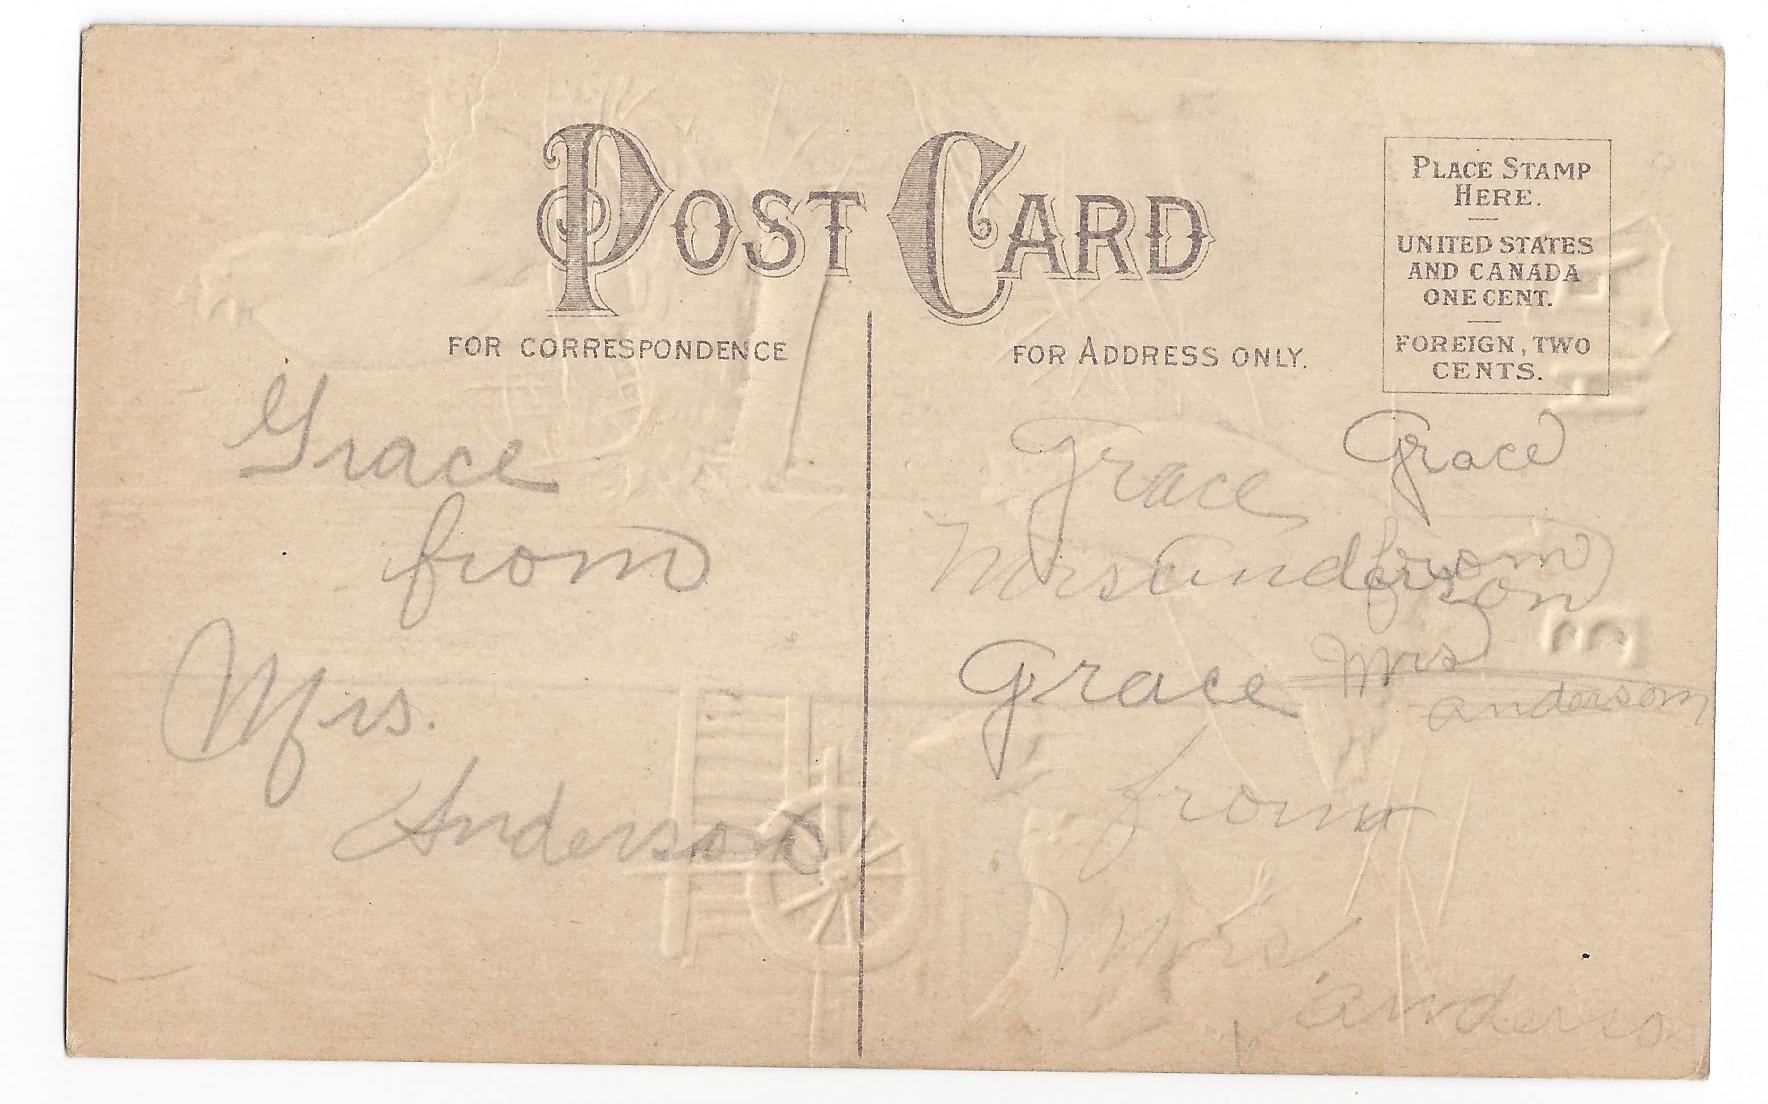 POST CARD
FOR CORRESPONDENCE
FOR ADDRESS ONLY.
PLACE STAMP
HERE.
UNITED STATES
AND CANADA
ONE CENT.
FOREIGN, TWO
CENTS.
Grace
from
Mrs.
Anderson
Grace
Mrs anderson
Grace
from
Mrs
anderso
Grace
from
Mrs
anderson